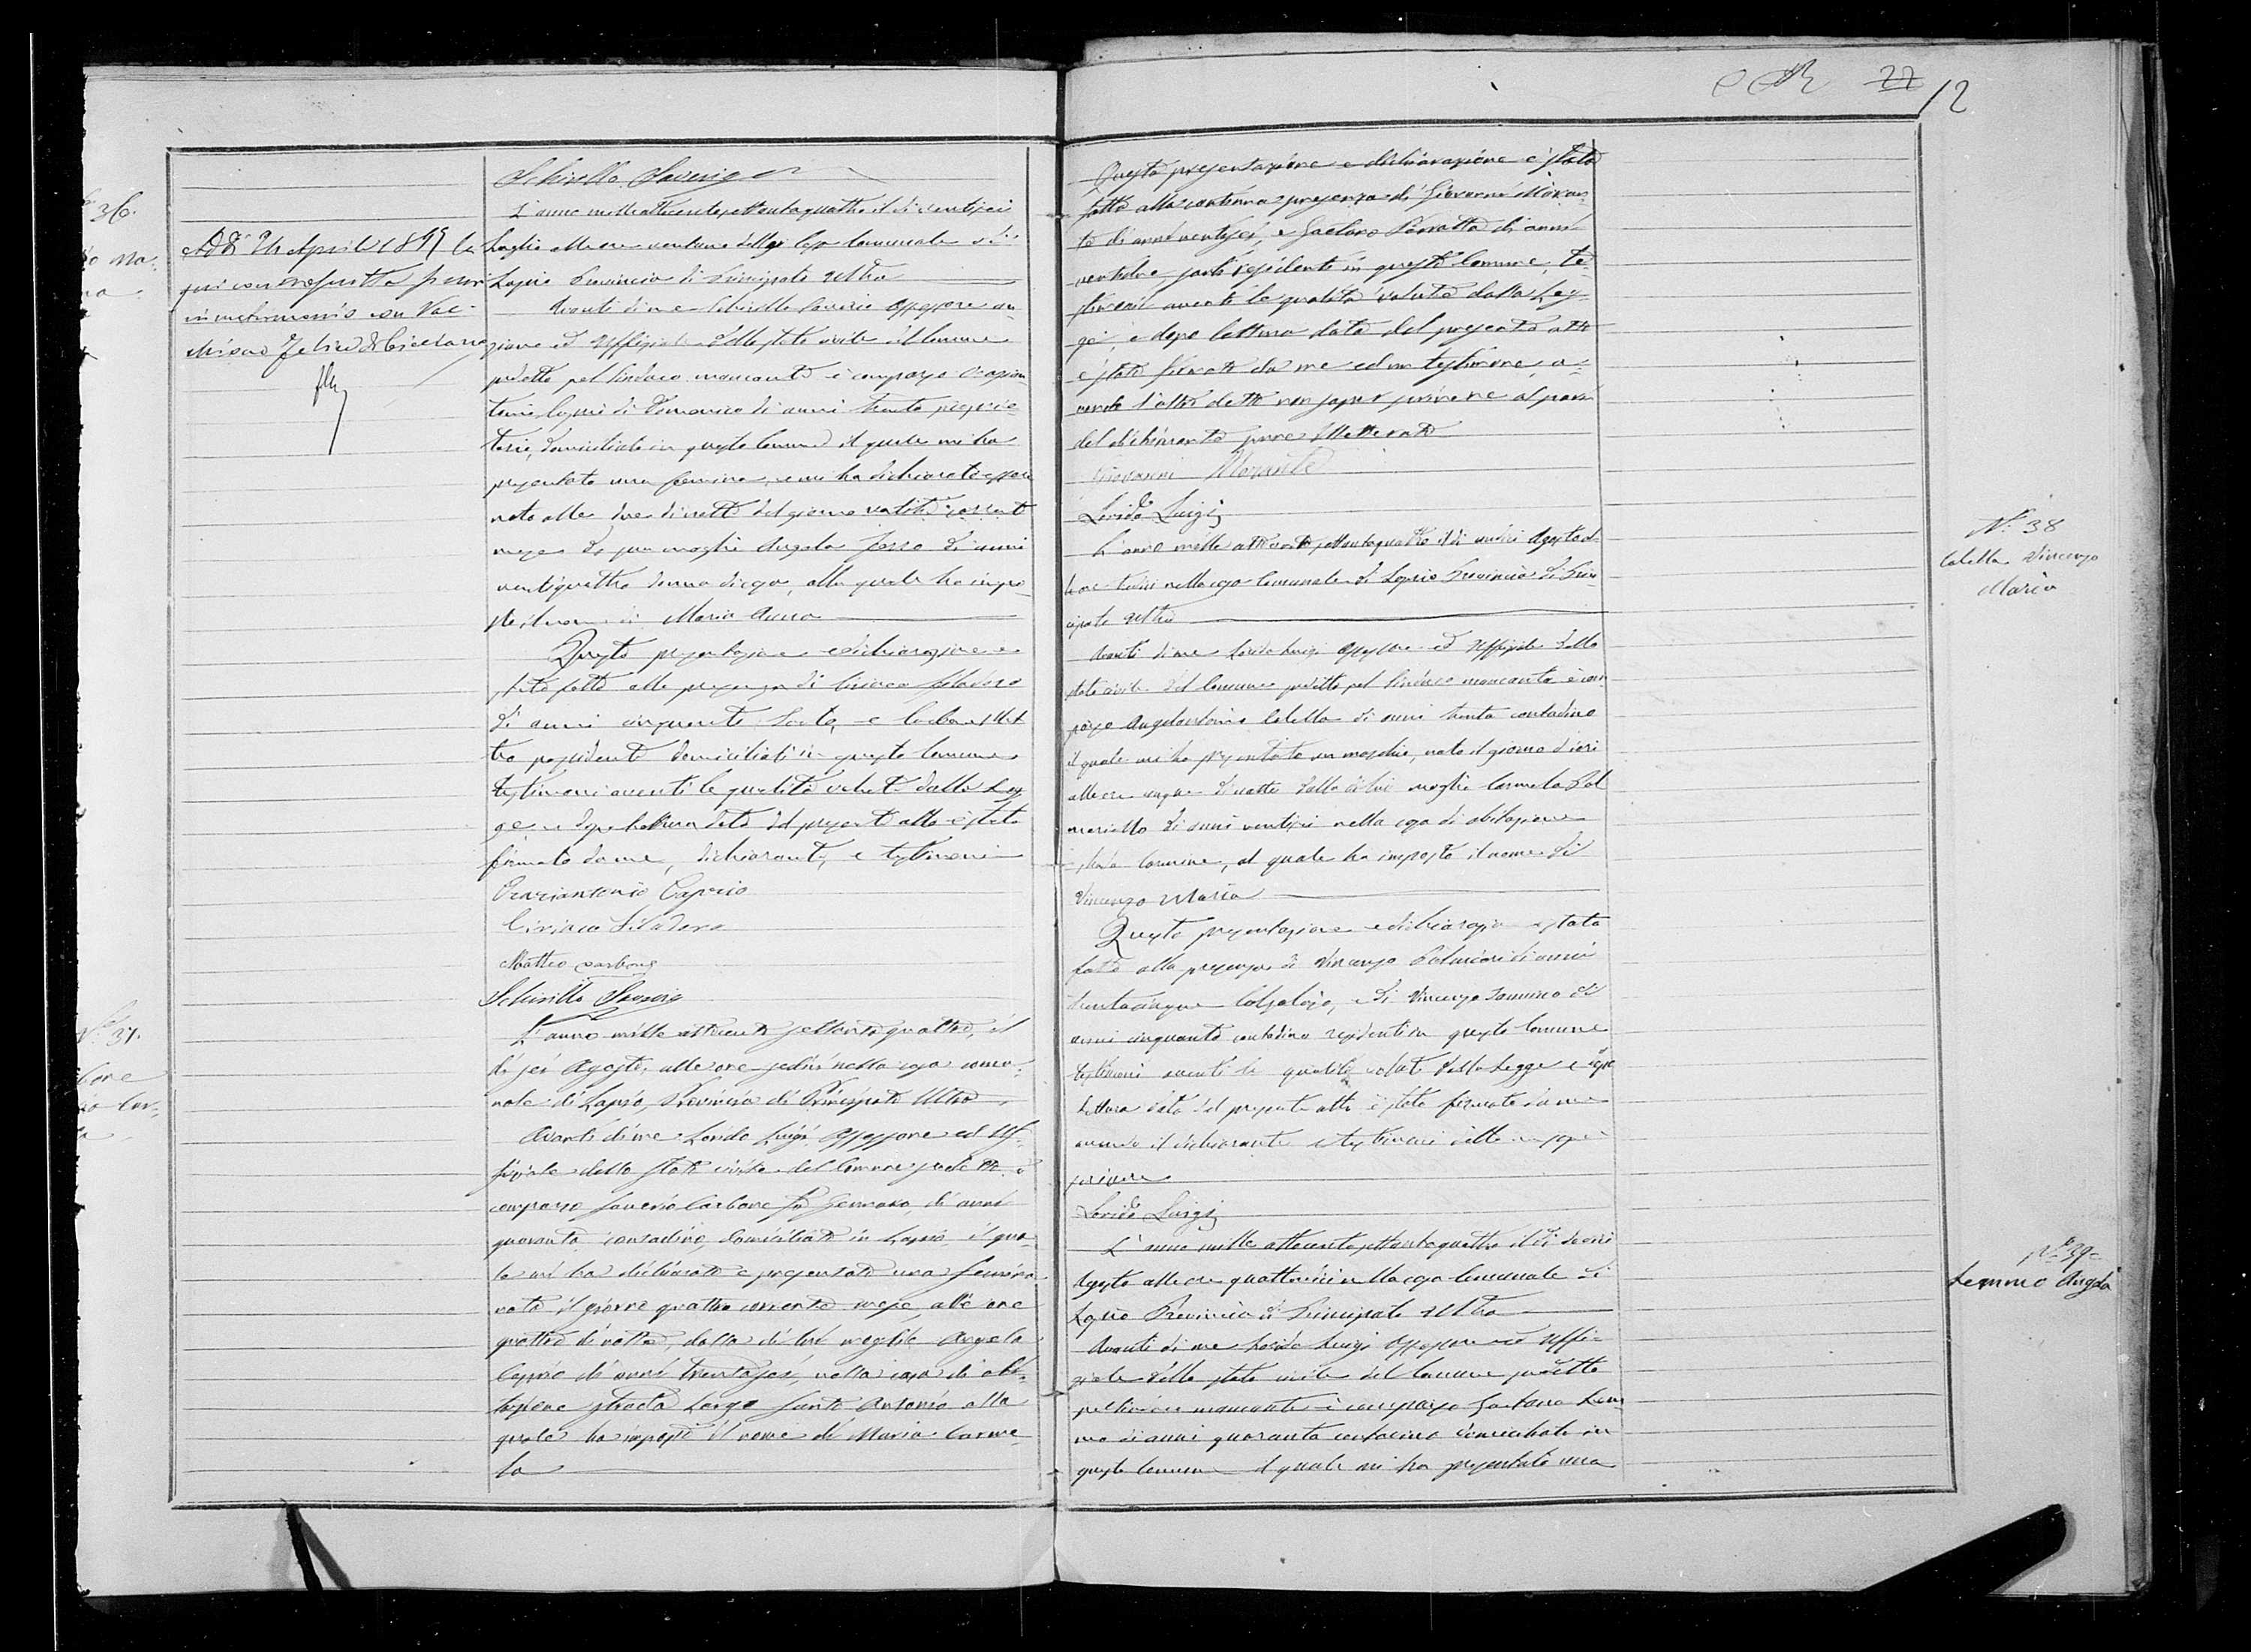 36.
Ma-
na
Addì 24 Aprile 1899 la
qui contro
in matrimonio con
Felice di Ciccilano
Schirillo Saverio
L'anno milleottocentosettantaquattro il dì ventisei
Luglio alle ore ventuna nella Casa Comunale di
Lapio Provincia di Principato Ultra
Avanti di me Schirillo Saverio Assessore an-
ziano ed Uffiziale dello stato civile del Comune
predetto pel Sindaco mancante è comparso Orazian-
tonio Caprio di Domenico di anni trenta proprie-
tario, domiciliato in questo Comune il quale mi ha
presentato una femina, e mi ha dichiarato essere
nata alle due di notte del giorno corrente
mese da sua moglie Angela Forte di anni
ventiquattro donna di casa, alla quale ha impo-
sto il nome di Maria Anna
Questa presentazione e dichiarazione è
stata fatta alla presenza di Ciriaco Filadoro
di anni cinquanta Sarto, e Carbone Mat-
teo possidente domiciliati in questo Comune
testimoni aventi le qualità volute dalla Leg-
ge e dopo lettura data del presente atto è stato
firmato da me, dichiarante, e testimoni
Oraziantonio Caprio
Ciriaco Filadoro
Matteo Carbone
Schirillo Saverio
N. 37.
Carbone
Maria Car-
L'anno mille ottocento settanta quattro, il
dì sei Agosto, alle ore sedici nella casa comu-
nale di Lapio, Provincia di Principato Ultra
Avanti di me Lorido Luigi Assessore ed Uf-
fiziale dello stato civile del Comune predetto è
comparso Saverio Carbone fu Gennaro, di anni
quaranta contadino, domiciliato in Lapio, il qua-
le mi ha dichiarato e presentato una femina
nata il giorno quattro corrente mese, alle ore
quattro di notte, dalla di lui moglie Angela
Caprio di anni trentasei, nella casa di abi-
tazione strada Largo Sant'Antonio alla
quale ha imposto il nome di Maria Carme-
la
22
12
Questa presentazione e dichiarazione è stata
fatta alla continua presenza di Giovanni Moran-
te di anni ventisei, e Gaetano di anni
ventidue, sarti residenti in questo Comune, te-
stimoni aventi le qualità volute dalla Leg-
ge, e dopo lettura data del presente atto
è stato firmato da me ed un testimone, a-
vendo l'altro detto non saper scrivere al pari
del dichiarante perché illetterato
Giovanni Morante
Lorido Luigi
N. 38
Calella Vincenzo
Maria
L'anno mille ottocento settantaquattro il dì undici Agosto al-
le ore tredici nella casa Comunale di Lapio Provincia di Prin-
cipato Ultra
Avanti di me Lorido Luigi Assessore ed Uffiziale dello
stato civile del Comune predetto pel Sindaco mancante è com-
parso Angelantonio Calella di anni trenta contadino
il quale mi ha presentato un maschio, nato il giorno d'ieri
alle ore cinque di notte dalla di lui moglie Carmela Pal-
mariello di anni ventisei nella casa di abitazione
strada Carmine, al quale ha imposto il nome di
Vincenzo Maria
Questa presentazione e dichiarazione è stata
fatta alla presenza di Vincenzo di anni
trentacinque Calzolajo, e di Vincenzo di
anni cinquanta contadino residenti in questo Comune
testimoni aventi le qualità volute dalla Legge e dopo
lettura data del presente atto è stato firmato da me
avendo il dichiarante e testimoni detto non sapere
scrivere
Lorido Luigi
N. 39
Lemmo Angela
L'anno mille ottocento settantaquattro il dì dodici
Agosto alle ore quattordici nella casa Comunale di
Lapio Provincia di Principato Ultra
Avanti di me Lorido Luigi Assessore ed Uffi-
ziale dello stato civile del Comune predetto
pel Sindaco mancante è comparso Gaetano Lem-
mo di anni quaranta contadino domiciliato in
questo Comune il quale mi ha presentato una